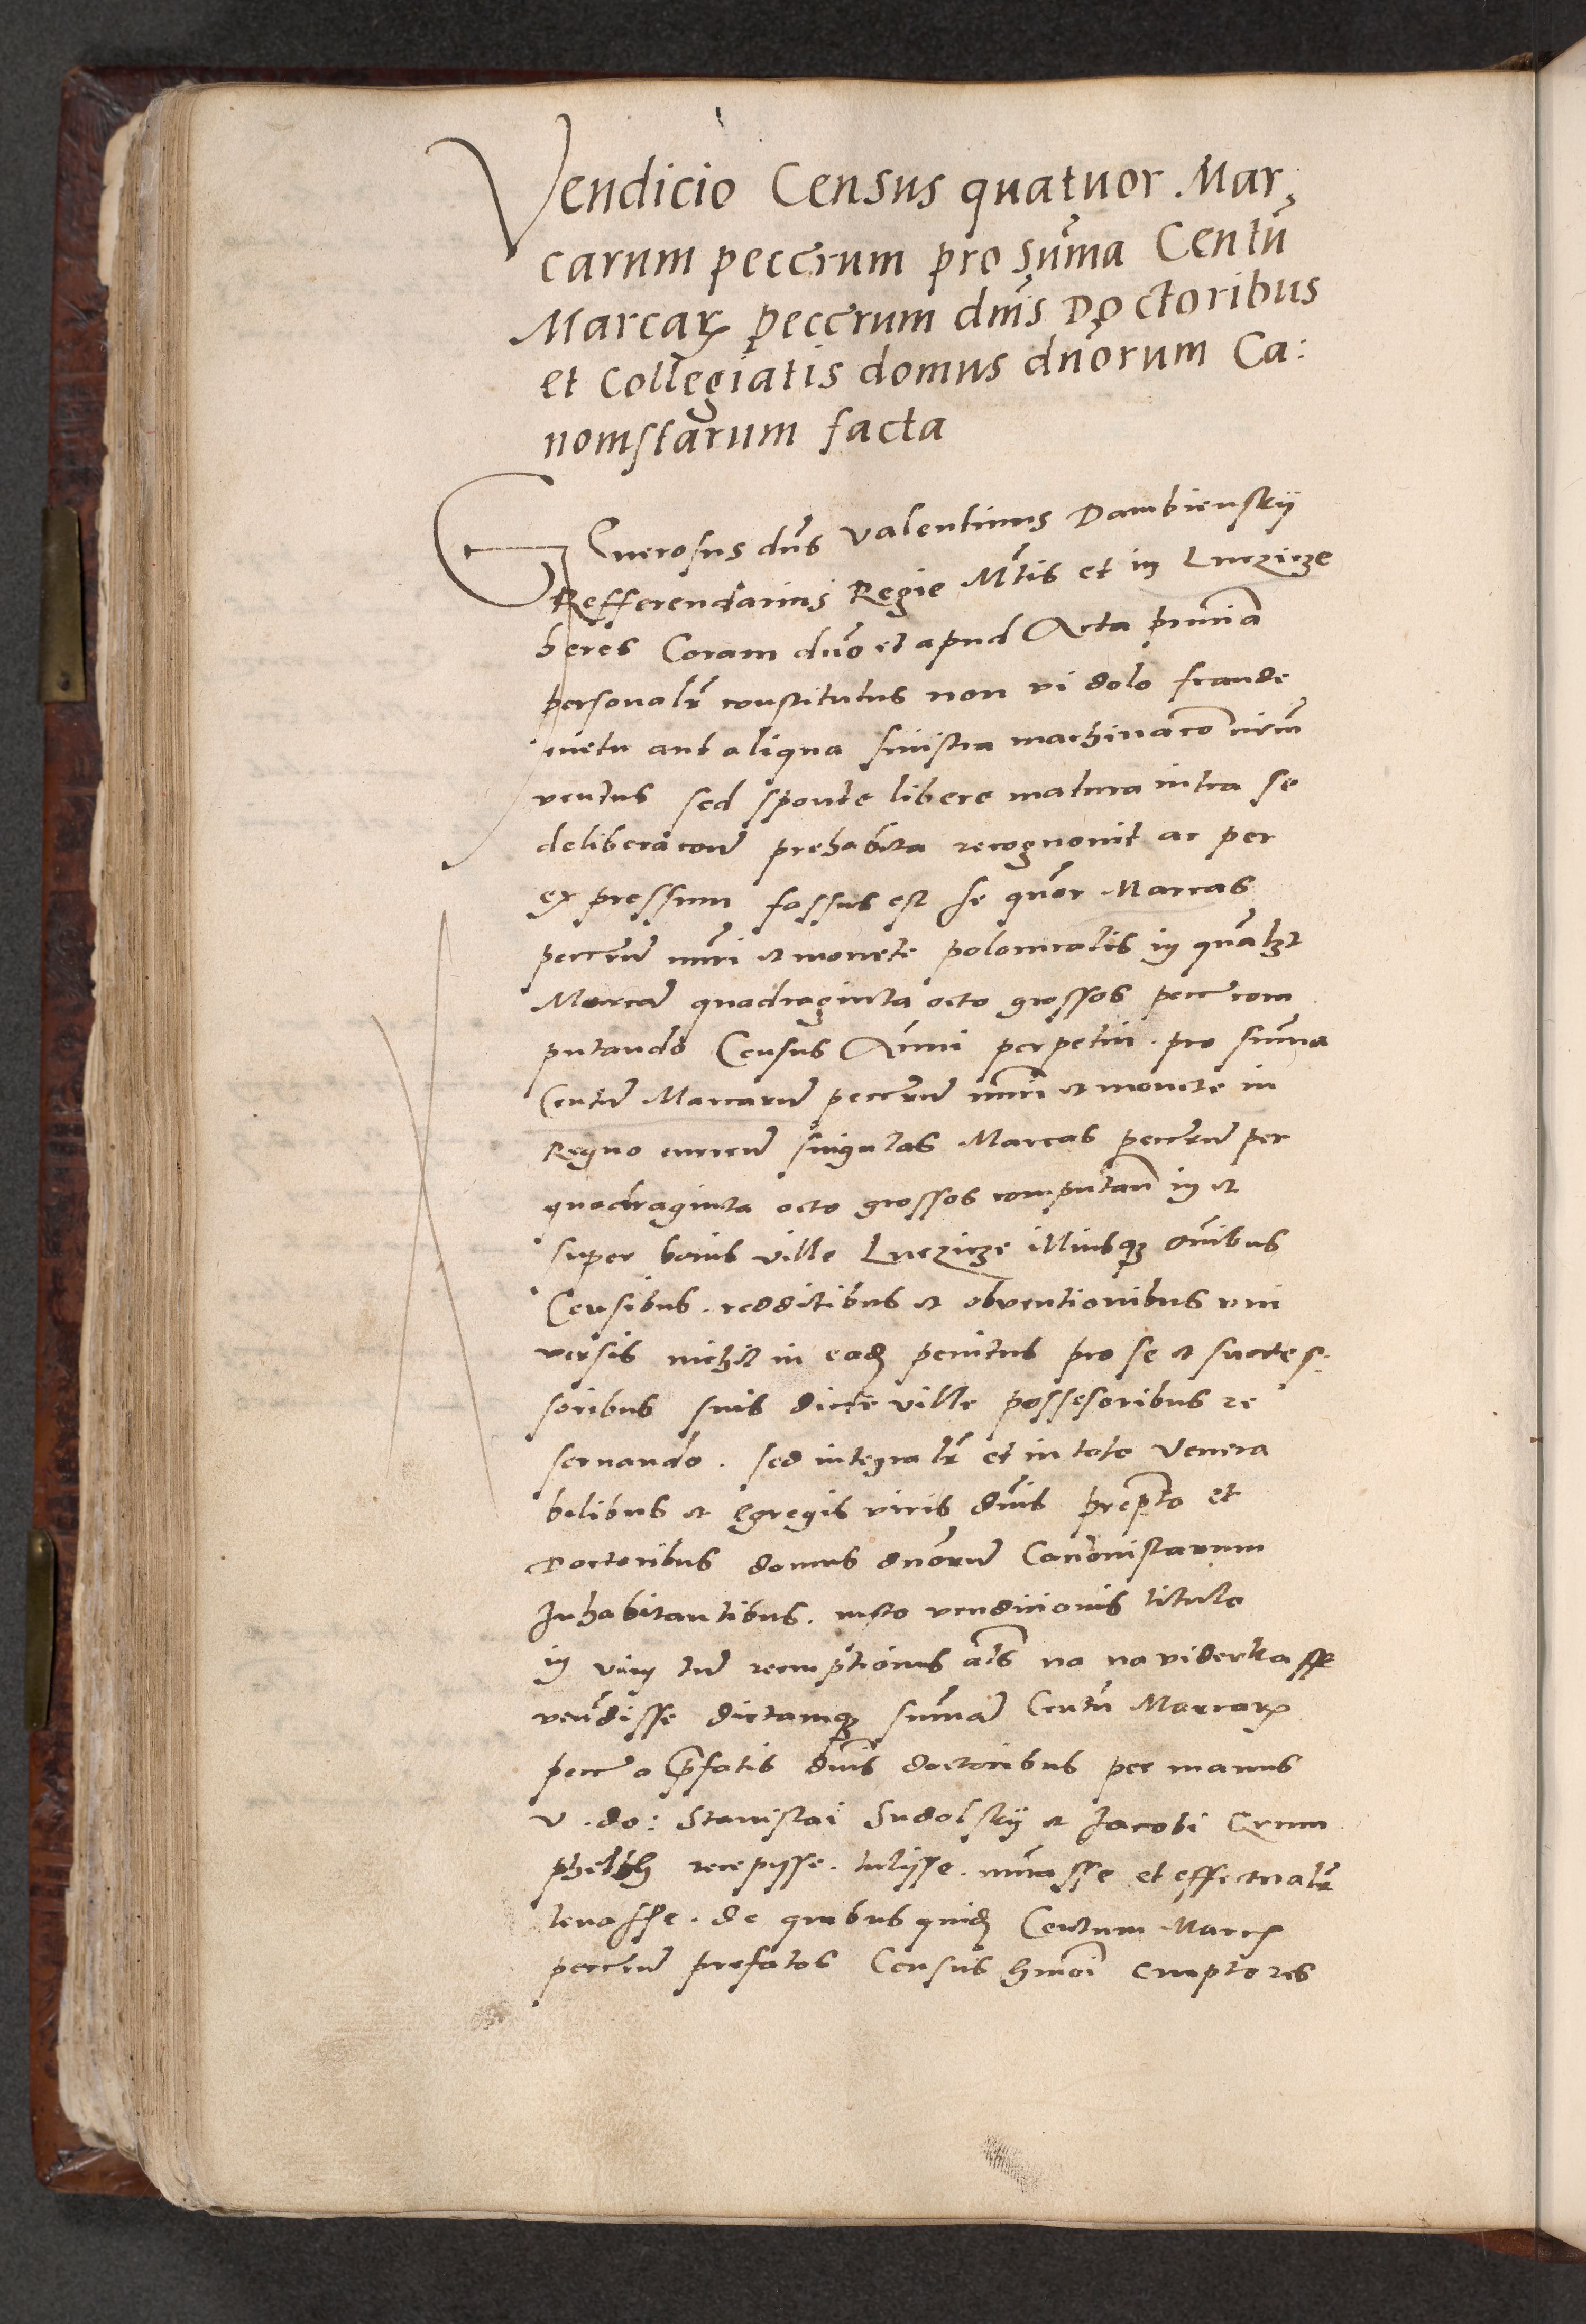 Vendicio Census quatuor Mar,
carum peccrum pro sum̄a Centū
Marcarꝝ peccrum dnīs Doctoribus
et Collegiatis domus dnōrum Ca:
nonistarum facta
Generosus dn̄s Valentinus Dambienskÿ
Refferendarius Regie Mt̄is et in Luczicze
heres Coram dnō et apud Acta pn̄cia
personalr̄ constitutus non vi dolo fraude
metu aut aliqua sinistra machinacōe circū
ventus sed sponte libere matura intra se
deliberacōne prehabita recognouit ac per
expressum fassus est se quōr Marcas
peccrū nūri et monete polonicalis in qualꝫt
Marcā quadraginta octo grossos pecc com
putando Census Annui perpetui pro sum̄a
Centū Marcarū peccrū nūri et monete in
Regno curren̄ singulas Marcas peccrū per
quadraginta octo grossos computan̄ in et
super bonis ville Luczicze illiusqꝫ om̄ibus
Censibus . redditibus et obventionibus vni
versis nichil in eadē penitus pro se et succes,
soribus suis dicte ville possesoribus re
seruando . sed integralr̄ et in toto Venera
bilibus et Egregis viris dn̄is prep̄to et
Doctoribus domus dnōrum Canonistarum
Inhabitantibus . iusto vendicionis titulo
in vim tn̄ reemptionis al̄s na na viderkaff
vendisse dictamqꝫ sum̄ā Centū Marcarꝝ
pecc a p̄fatis dn̄is doctoribus per manus
V . do: Stanislai Sudolskÿ et Jacobi
recepysse . tulisse . nūrasse et effectualr̄
leuasse . de quibus quidē Centum Marcꝝ
peccrū prefatos Census hmōi emptores